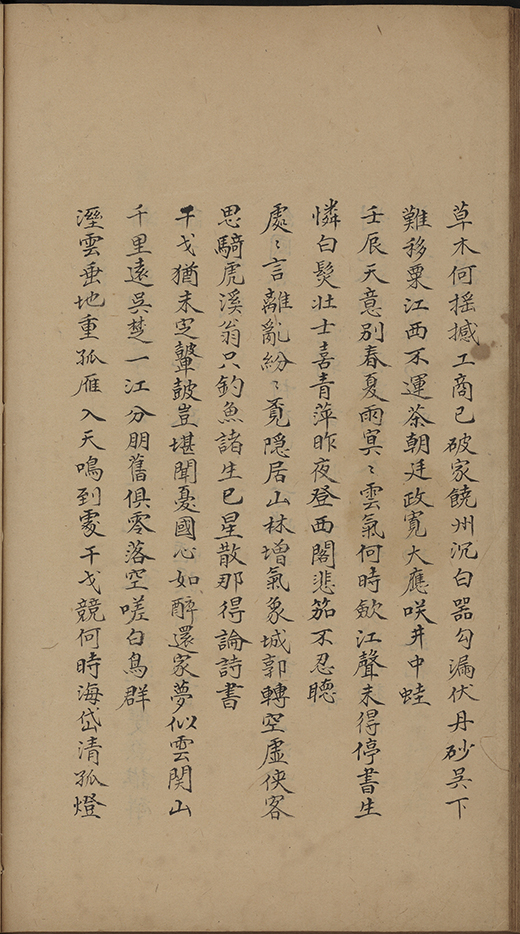 草木何揺撼工商已破家饒州沉白器勾漏伏丹砂吳下
難移粟江西不運茶朝廷政寬大應咲井中蛙
壬辰天意別春夏雨冥〻雲氣何時歛江聲未得停書生
憐白髮壯士喜青萍昨夜登西閣悲笳不忍聴
處〻言離亂紛〻覔隠居山林增氣象城郭轉空虛俠客
思騎虎溪翁只釣魚諸生已星散那得論詩書
干戈猶未定鼙鼓豈堪聞憂國心如醉還家夢似雲関山
千里遠吳楚一江分朋舊俱零落空嗟白鳥群
溼雲垂地重孤雁入天鳴到處干戈競何時海岱清孤燈